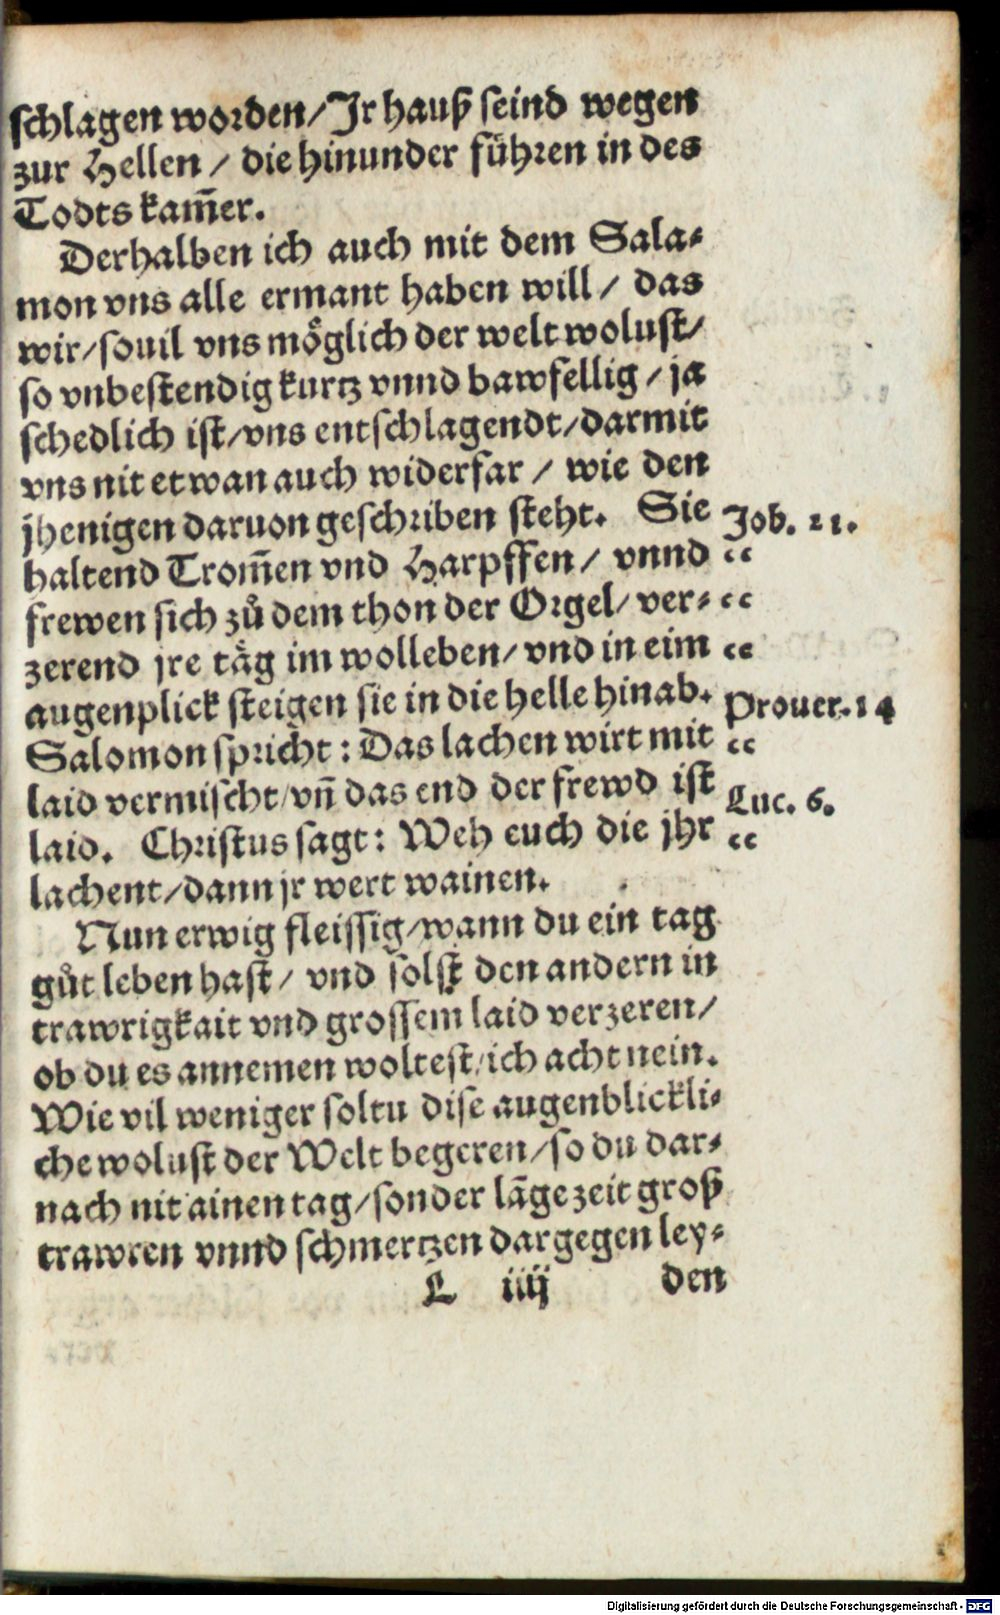 schlagen worden/Jr hauß seind wegen
zur Hellen / die hinunder führen in des
Todts kam̃er.
Derhalben ich auch mit dem Sala⸗
mon vns alle ermant haben will / das
wir/souil vns möglich der welt wolust/
so vnbestendig kurtz vnnd bawfellig / ja
schedlich ist/vns entschlagendt/darmit
vns nit etwan auch widerfar / wie den
jhenigen daruon geschriben steht. Sie
Job. 21.
haltend Trom̃en vnd Harpffen/ vnnd
“
frewen sich zů dem thon der Orgel/ ver⸗
“
zerend jre täg im wolleben/ vnd in eim
“
augenplick steigen sie in die helle hinab.
Prouer. 14
Salomon spricht: Das lachen wirt mit
“
laid vermischt/vñ das end der frewd ist
Luc. 6.
laid. Christus sagt: Weh euch die jhr
“
lachent/dann jr wert wainen.
Nun erwig fleissig/wann du ein tag
gůt leben hast/ vnd solst den andern in
trawrigkait vnd grossem laid verzeren/
ob du es annemen woltest/ich acht nein.
Wie vil weniger soltu dise augenblickli⸗
che wolust der Welt begeren/so du dar⸗
nach nit ainen tag/sonder lãge zeit groß
trawren vnnd schmertzen dargegen ley⸗
L iiij den
Digitalisierung gefördert durch die Deutsche Forschungsgemeinschaft - DFG